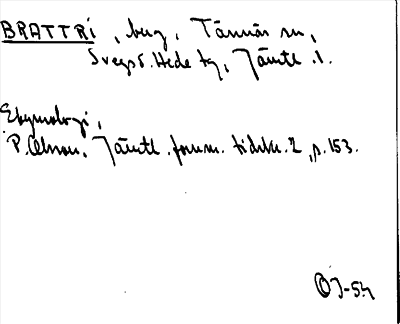 BRATTRI, berg, Tännäs sn,
Svegs o. Hede tg, Jämtl. l.
Etymologi,
P. Olsson, Jämtl. fornm. tidskr. 2, p. 153.
OJ-54